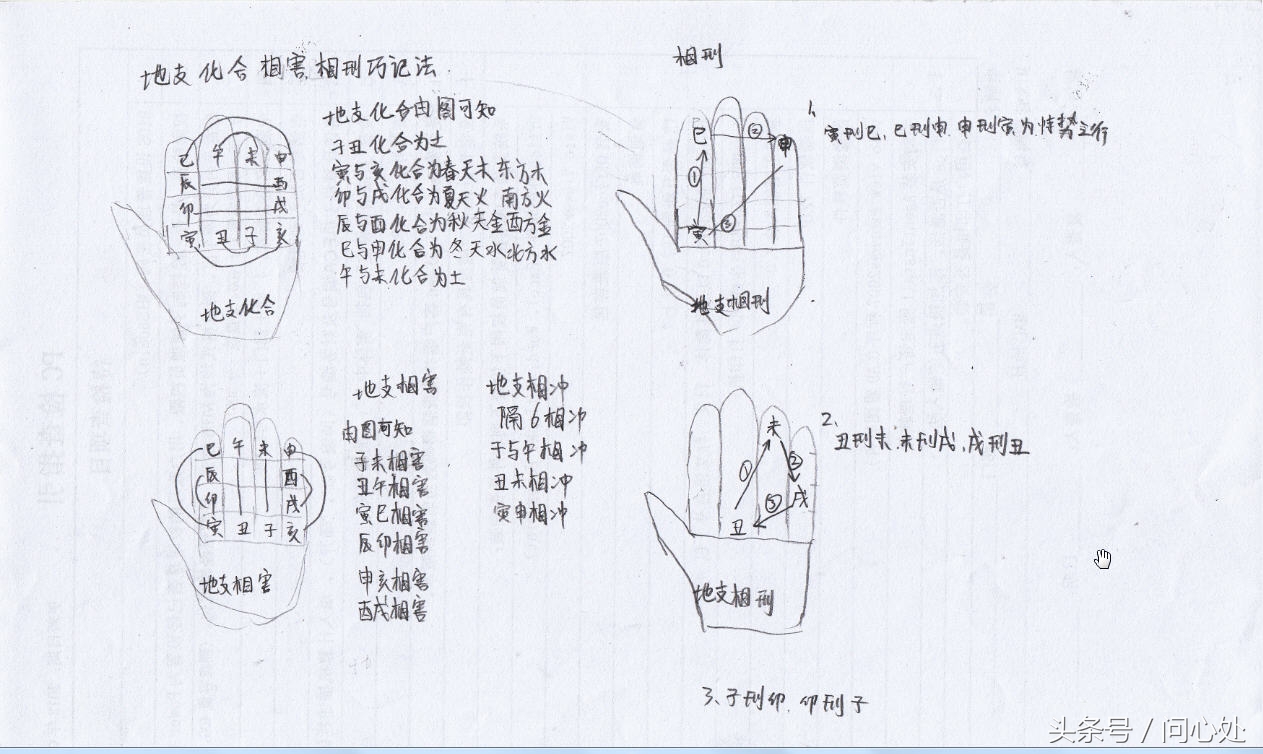 地支化合相害相刑巧记法
地支化合由图可知
子丑化合为土
寅与亥化合为春天木东方木
卯与戌化合为夏天火 南方火
辰与酉化合为秋天金西方金
巳与申化合为冬天水北方水
午与未化合为土
巳 午 未 申
辰 酉
卯 戌
寅 丑 子 亥
地支化合
相刑
1、寅刑巳、巳刑申、申刑寅为恃势之行
巳 ② 申
①
寅 ③
地支相刑
地支相害
由图可知
子未相害
丑午相害
寅巳相害
辰卯相害
申亥相害
酉戌相害
巳 午 未 申
辰 酉
卯 戌
寅 丑 子 亥
地支相害
地支相冲
隔6相冲
子与午相冲
丑未相冲
寅申相冲
2、丑刑未、未刑戌、戌刑丑
未
① ②
戌
③
丑
地支相刑
3、子刑卯、卯刑子
头条号 / 问心处